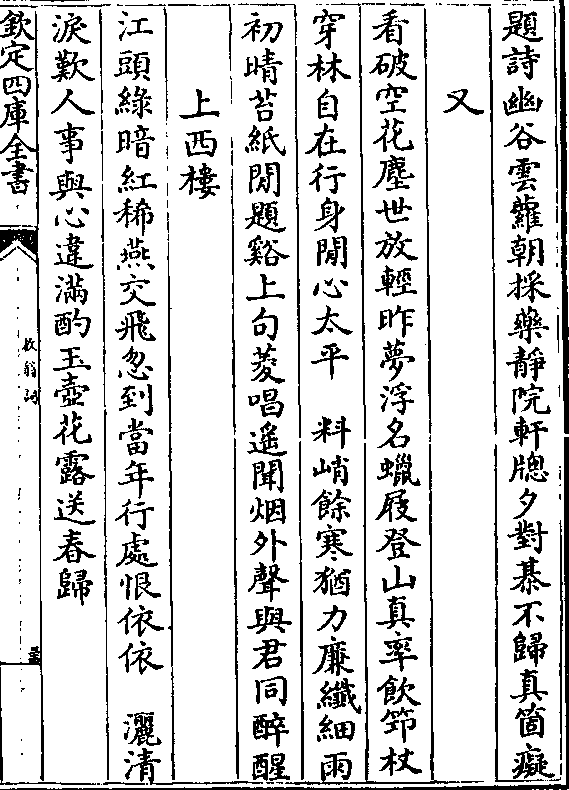 題詩幽谷雲蘿朝採藥靜院軒牕夕對棊不歸真箇癡
又
看破空花塵世放輕昨夢浮名蠟屐登山真率飲笻杖
穿林自在行身閒心太平　料峭餘寒猶力廉纖細雨
初晴苔紙閒題谿上句菱唱遥聞烟外聲與君同醉醒
上西樓
江頭綠暗紅稀燕交飛忽到當年行處恨依依　灑清
淚歎人事與心違滿酌玉壺花露送春歸
欽定四庫全書
放翁詞